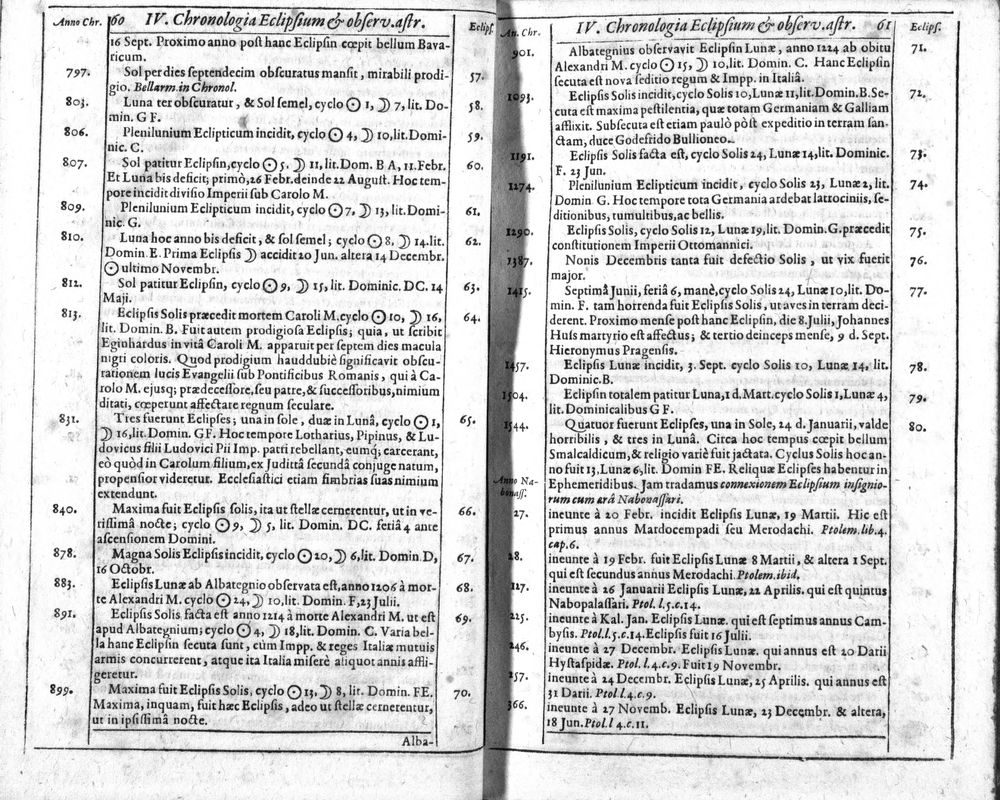 Anno Chr. 60 IV. Chronologia Eclipsium & observ. astr. Eclips.
16 Sept. Proximo anno post hanc Eclipsin cœpit bellum Bava-
ricum.
797. Sol per dies septendecim obscuratus mansit, mirabili prodi- 57.
gio. Bellarm. in Chronol.
803. Luna ter obscuratur, & Sol semel, cyclo ☉ 1, ☽ 7, lit. Do- 58.
min. G F.
806. Plenilunium Eclipticum incidit, cyclo ☉ 4, ☽ 10, lit. Domi- 59.
nic. C.
807. Sol patitur Eclipsin, cyclo ☉ 5. ☽ 11, lit. Dom. B A, 11. Febr. 60.
Et Luna bis deficit; primò, 26 Febr. deinde 22 August. Hoc tem-
pore incidit divisio Imperii sub Carolo M.
809. Plenilunium Eclipticum incidit, cyclo ☉ 7, ☽ 13, lit. Domi- 61.
nic. G.
810. Luna hoc anno bis deficit, & sol semel; cyclo ☉ 8, ☽ 14. lit. 62.
Domin. E. Prima Eclipsis ☽ accidit 20 Jun. altera 14 Decembr.
☉ ultimo Novembr.
812. Sol patitur Eclipsin, cyclo ☉ 9, ☽ 15, lit. Dominic. DC. 14 63.
Maji.
813. Eclipsis Solis præcedit mortem Caroli M. cyclo ☉ 10, ☽ 16, 64.
lit. Domin. B. Fuit autem prodigiosa Eclipsis; quia, ut scribit
Eginhardus in vitâ Caroli M. apparuit per septem dies macula
nigri coloris. Quod prodigium hauddubiè significavit obscu-
rationem lucis Evangelii sub Pontificibus Romanis, qui à Ca-
rolo M. ejusq; prædecessore, seu patre, & successoribus, nimium
ditati, cœperunt affectare regnum seculare.
831. Tres fuerunt Eclipses; una in sole, duæ in Lunâ, cyclo ☉ 1, 65.
☽ 16, lit. Domin. GF. Hoc tempore Lotharius, Pipinus, & Lu-
dovicus filii Ludovici Pii Imp. patri rebellant, eumq; carcerant,
eò quòd in Carolum filium, ex Juditâ secundâ conjuge natum,
propensior videretur. Ecclesiastici etiam fimbrias suas nimium
extendunt.
840. Maxima fuit Eclipsis solis, ita ut stellæ cernerentur, ut in ve- 66.
rissimâ nocte; cyclo ☉ 9, ☽ 5, lit. Domin. DC. feriâ 4 ante
ascensionem Domini.
878. Magna Solis Eclipsis incidit, cyclo ☉ 20, ☽ 6, lit. Domin D, 67.
16 Octobr.
883. Eclipsis Lunæ ab Albategnio observata est, anno 1206 à mor- 68.
te Alexandri M. cyclo ☉ 24, ☽ 10, lit. Domin. F, 23 Julii.
891. Eclipsis Solis facta est anno 1214 à morte Alexandri M. ut est 69.
apud Albategnium; cyclo ☉ 4, ☽ 18, lit. Domin. C. Varia bel-
la hanc Eclipsin secuta sunt, cùm Impp. & reges Italiæ mutuis
armis concurrerent, atque ita Italia miserè aliquot annis affli-
geretur.
899. Maxima fuit Eclipsis Solis, cyclo ☉ 13, ☽ 8, lit. Domin. FE. 70.
Maxima, inquam, fuit hæc Eclipsis, adeo ut stellæ cernerentur,
ut in ipsissimâ nocte.
Alba-
An. Chr. IV. Chronologia Eclipsium & observ. astr. 61 Eclips.
901. Albategnius observavit Eclipsin Lunæ, anno 1224 ab obitu 71.
Alexandri M. cyclo ☉ 15, ☽ 10, lit. Domin. C. Hanc Eclipsin
secuta est nova seditio regum & Impp. in Italiâ.
1093. Eclipsis Solis incidit, cyclo Solis 10, Lunæ 11, lit. Domin. B. Se- 72.
cuta est maxima pestilentia, quæ totam Germaniam & Galliam
afflixit. Subsecuta est etiam paulò pòst expeditio in terram san-
ctam, duce Godefrido Bullioneo.
1191. Eclipsis Solis facta est, cyclo Solis 24, Lunæ 14, lit. Dominic. 73.
F. 23 Jun.
1274. Plenilunium Eclipticum incidit, cyclo Solis 23, Lunæ 2, lit. 74.
Domin G. Hoc tempore tota Germania ardebat latrociniis, se-
ditionibus, tumultibus, ac bellis.
1290. Eclipsis Solis, cyclo Solis 12, Lunæ 19, lit. Domin. G. præcedit 75.
constitutionem Imperii Ottomannici.
1387. Nonis Decembris tanta fuit defectio Solis, ut vix fuerit 76.
major.
1415. Septimâ Junii, feriâ 6, manè, cyclo Solis 24, Lunæ 10, lit. Do- 77.
min. F. tam horrenda fuit Eclipsis Solis, ut aves in terram deci-
derent. Proximo mense post hanc Eclipsin, die 8. Julii, Johannes
Huss martyrio est affectus; & tertio deinceps mense, 9 d. Sept.
Hieronymus Pragensis.
1457. Eclipsis Lunæ incidit, 3. Sept. cyclo Solis 10, Lunæ 14, lit. 78.
Dominic. B.
1504. Eclipsin totalem patitur Luna, 1 d. Mart. cyclo Solis 1, Lunæ 4, 79.
lit. Dominicalibus G F.
1544. Quatuor fuerunt Eclipses, una in Sole, 24 d. Januarii, valde 80.
horribilis, & tres in Lunâ. Circa hoc tempus cœpit bellum
Smalcaldicum, & religio variè fuit jactata. Cyclus Solis hoc an-
no fuit 13, Lunæ 6, lit. Domin FE. Reliquæ Eclipses habentur in
Anno Na-
bonass.
Ephemeridibus. Jam tradamus connexionem Eclipsium insignio-
rum cum ærâ Nabonassari.
27. ineunte à 20 Febr. incidit Eclipsis Lunæ, 19 Martii. Hic est
primus annus Mardocempadi seu Merodachi. Ptolem. lib. 4.
cap. 6.
28. ineunte à 19 Febr. fuit Eclipsis Lunæ 8 Martii, & altera 1 Sept.
qui est secundus annus Merodachi. Ptolem. ibid.
127. ineunte à 26 Januarii Eclipsis Lunæ, 22 Aprilis. qui est quintus
Nabopalassari. Ptol. l. 5. c. 14.
225. ineunte à Kal. Jan. Eclipsis Lunæ. qui est septimus annus Cam-
bysis. Ptol. l. 5. c. 14. Eclipsis fuit 16 Julii.
246. ineunte à 27 Decembr. Eclipsis Lunæ. qui annus est 20 Darii
Hystaspidæ. Ptol. l. 4. c. 9. Fuit 19 Novembr.
257. ineunte à 24 Decembr. Eclipsis Lunæ, 25 Aprilis. qui annus est
31 Darii. Ptol. l. 4. c. 9.
366. ineunte à 27 Novemb. Eclipsis Lunæ, 23 Decembr. & altera,
18 Jun. Ptol. l 4. c. 11.